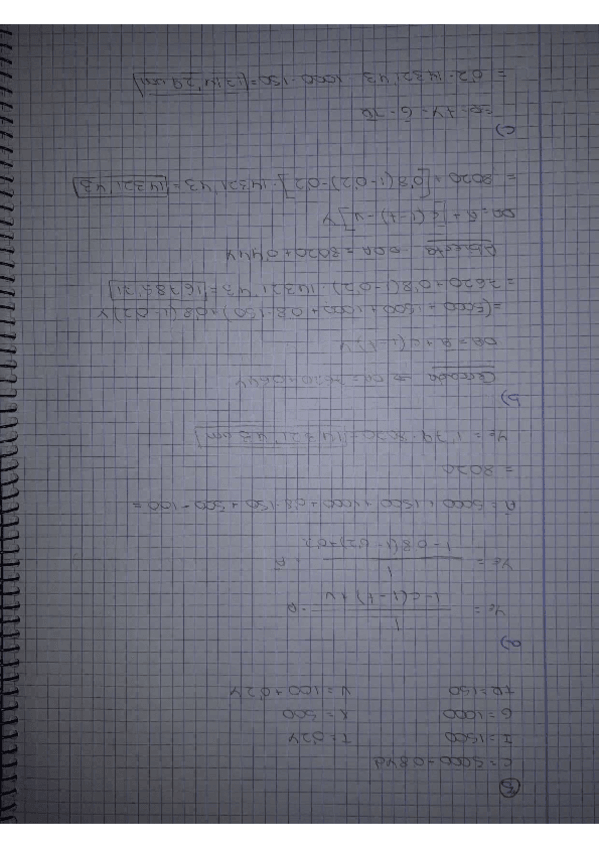 3
C = 5000 + 0'8 Yd
I = 1500 T = 0'2Y
G = 1000 X = 500
TR = 150 V = 100 + 0,2Y
a)
Ye = 1 / 1 - c(1 - t) + v · A
Ye = 1 / 1 - 0'8(1 - 0'2) + 0'2 · A
A = 5000 + 1500 + 1000 + 0'8 · 150 + 500 - 100 =
= 8020
Ye = 1'79 · 8020 = 14321'43 um
b)
Cerrada => DA = 7620 + 0,64Y
DA = A + c(1 - t)Y
= (5000 + 1500 + 1000 + 0'8 · 150) + 0'8(1 - 0'2)Y
= 7620 + 0'8(1 - 0'2) · 14321'43 = 16785'71
Abierta DDA = 8020 + 0'44Y
DA = A + [c(1 - t) - v]Y
= 8020 + [0'8(1 - 0'2) - 0'2] · 14321'43 = 14321'43
c)
= 0'2 · 14321'43 - 1000 - 150 = 1714'29 um